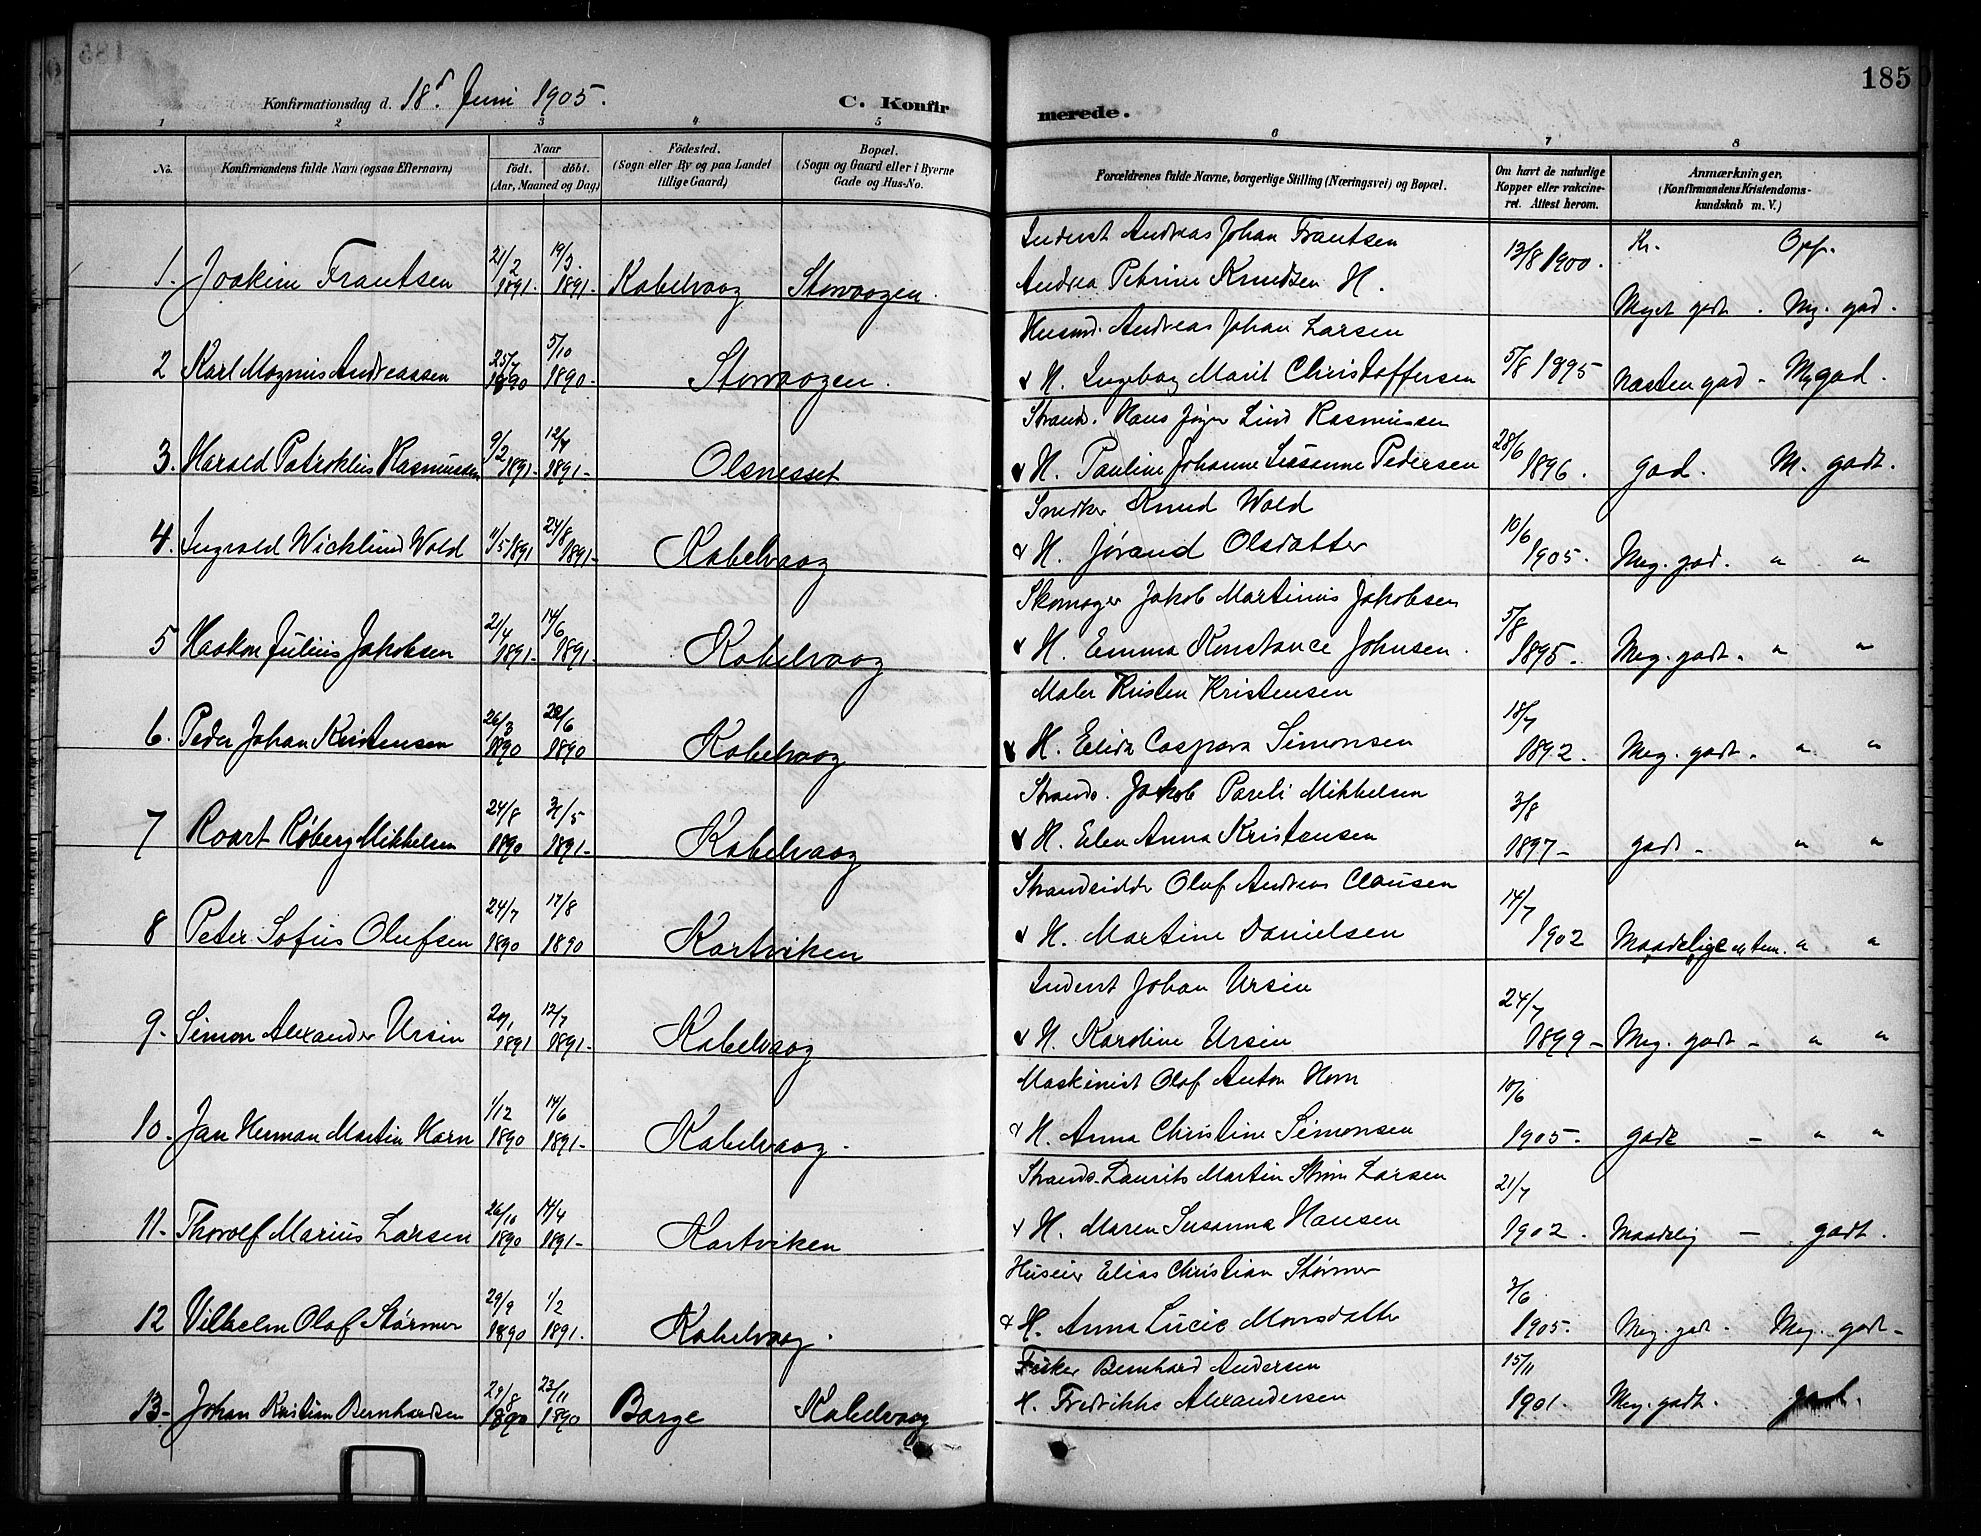 185
Konfirmationsdag d. 18d Juni 1905. C. Konfirmerede.
1 2 3 4 5 6 7 8
No. Konfirmandens fulde Navn (ogsaa Efternavn) Naar födt. döbt. (Aar, Maaned og Dag) Födested. (Sogn eller By og paa Landet tillige Gaard) Bopæl. (Sogn og Gaard eller i Byerne Gade og Hus-No. Forældrenes fulde Navne, borgerlige Stilling (Næringsvei) og Bopæl. Om havt de naturlige Kopper eller vakcineret. Attest herom. Anmærkninger, (Konfirmandens Kristendomskundskab m. V.)
Inderst Andreas Johan Frantsen Kr. Opf.
1. Joakim Frantsen 21/2 1891- 19/3 1891- Kabelvaag Storvaagen. Andrea Petrine Knudsen H. 13/8 1900. Meget godt. Mg. god.
Husmd. Andreas Johan Larsen
2 Karl Magnus Andreassen 25/7 1890 5/10 1890- Storvaagen. & H. Ingebog Marit Christoffersen 5/8 1895 Næsten god - Mg god.
Strands. Hans Jøger Lind Rasmussen
3. Harald Patroklus Rasmussen 9/2 1891- 12/7 1891- Olsnesset & H. Pauline Johanne Susanne Pedersen 28/6 1896. god. M. godt.
Snedker Knud Wold
4. Ingvald Wicklund Wold 11/5 1891 24/8 1891- Kabelvaag & H. Jørand Olsdatter 10/6 1905. Meg. god. " "
Skomager Jakob Martinus Jakobsen
5 Haakon Julius Jakobsen 21/4 1891- 14/6 1891- Kabelvaag & H. Emma Konstance Johnsen. 5/8 1895. Meg. godt. " "
Maler Kristen Kristensen
6. Peder Johan Kristensen 26/3 1890 22/6 1890 Kabelvaag & H. Elida Caspara Simonsen 18/7 1892. Meg. godt. " "
Strands. Jakob Pareli Mikkelsen
7 Roart Røberg Mikkelsen 24/8 1890 31/5 1891- Kabelvaag & H. Elen Anna Kristensen 3/8 1897- godt - " "
Strandsidder Olaf Andreas Clausen
8 Peter Sofus Olufsen 24/7 1890 17/8 1890 Kartviken & H. Martine Danielsen 14/7 1902 Maadelige " "
Inderst Johan Ursin
9- Simon Alexander Ursin 1891 12/7 1891- Kabelvaag & H. Karoline Ursin 24/7 1899- Meg. godt - " "
Maskinist Olaf Anton Horn
10- Jan Herman Martin Horn 1/12 1890 14/6 1891- Kabelvaag. & H. Anna Christine Simonsen 10/6 1905. godt - " "
Strands. Laurits Martin Larsen
11- Thorolf Marius Larsen 26/10 1890 1891- Kartviken & H. Maren Susanna Hansen 21/7 1902. Maadelig - godt.
Huseier Elias Christian Størmer
12 Vilhelm Olaf Størmer 29/9 1890 1/2 1891. Kabelvaag. & H. Anna Lucie Monsdatter 3/6 1905. Meg. god. Meg. godt-
Fisker Bernhard Andersen
13- Johan Kristian Bernhardsen 29/8 1890 23/11 1890 Borge Kabelvaag H. Fredrikke Alexandersen 15/11 1901. Meg. godt. godt.